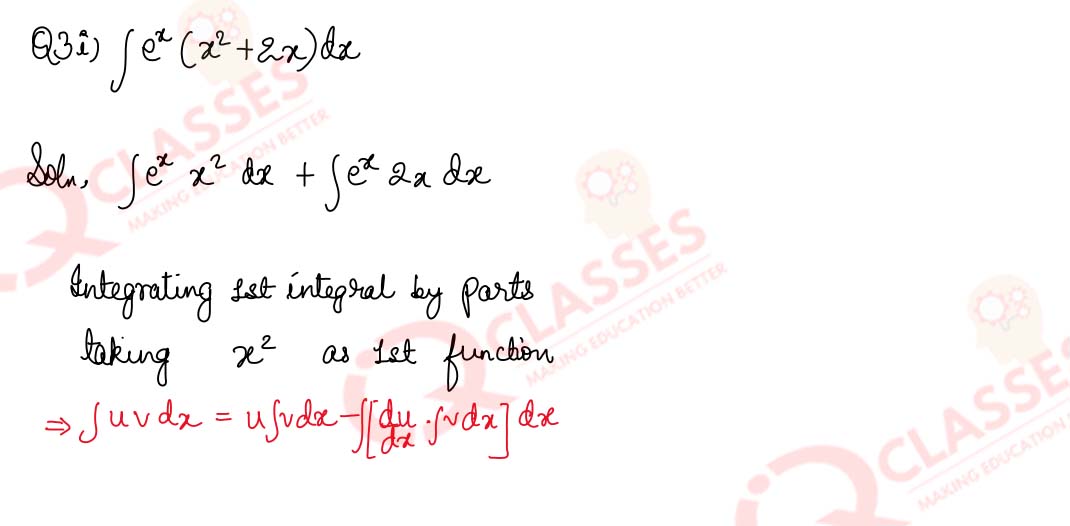 Q3i) ∫ eˣ (x² + 2x) dx
Soln, ∫ eˣ x² dx + ∫ eˣ 2x dx
Integrating 1st integral by parts
taking x² as 1st function
⇒ ∫ u v dx = u ∫ v dx - ∫ [ du/dx · ∫ v dx ] dx
CLASSES
MAKING EDUCATION BETTER
CLASSES
MAKING EDUCATION BETTER
CLASSES
MAKING EDUCATION